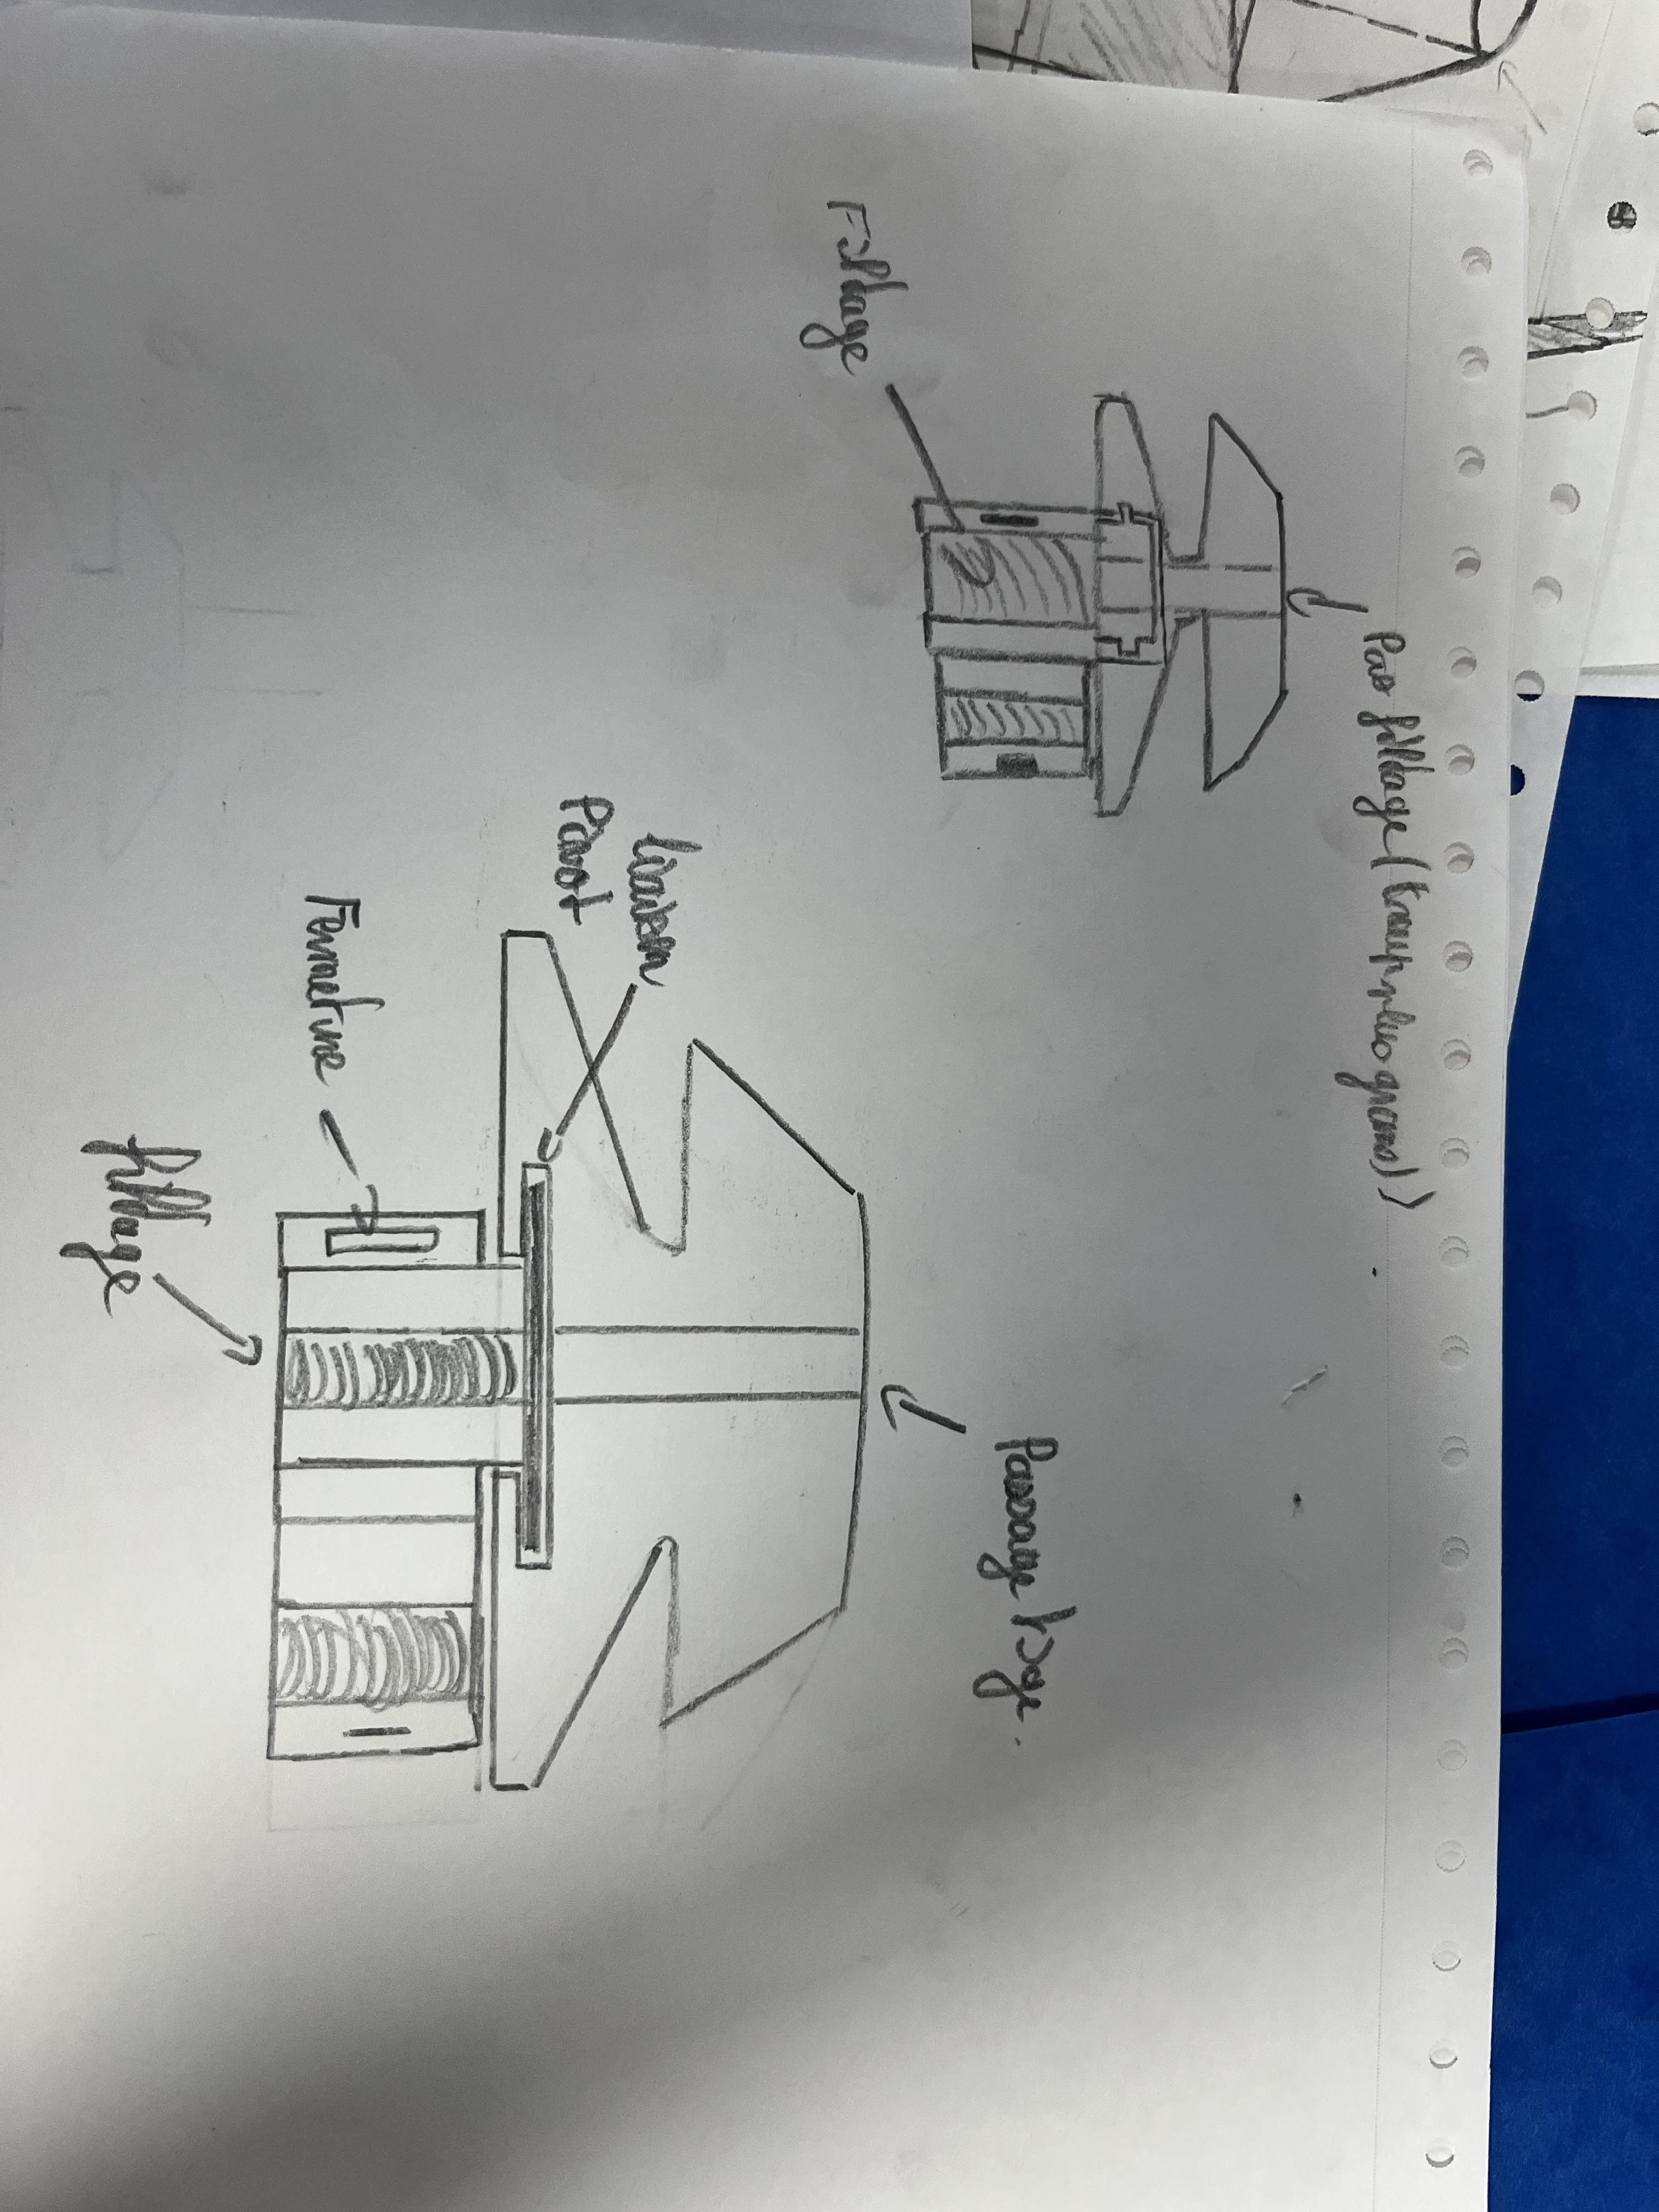 Pas filtage (troup plus grans)
Filtage
Passage tige.
Liaison
Pivot
Fermeture
filtage